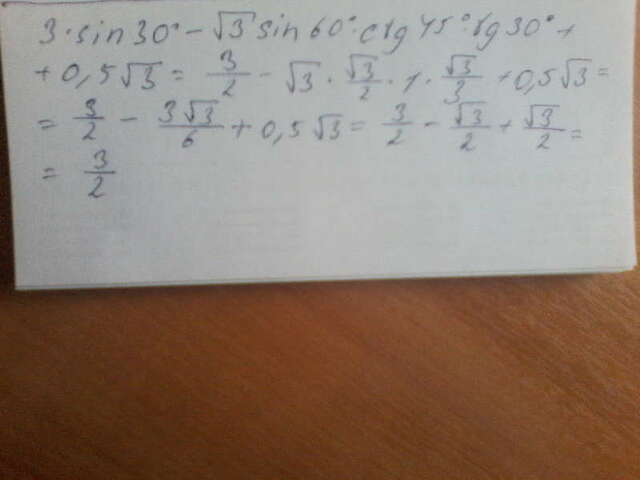 3·sin30° - √3 sin60°·ctg45°·tg30° +
+ 0,5√3 = 3/2 - √3 · √3/2 · 1 · √3/3 + 0,5√3 =
= 3/2 - 3√3/6 + 0,5√3 = 3/2 - √3/2 + √3/2 =
= 3/2